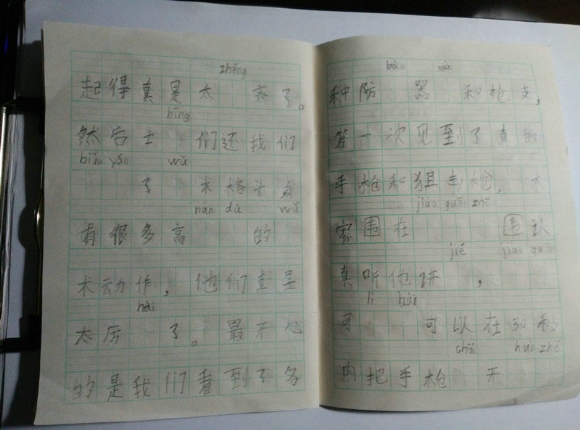 zhěng
起得真是太 齐了。
bīng
然后士 们还 我们
biǎo yǎn wǔ
了 术格斗
nán dù wǔ
有很多高 的
术动作,他们真是
hài
太厉 了。最开心
的是我们看到了各
种防 器 和枪支,
第一次见到了真的
手枪和狙击枪,大
jiao guān
家围在 围认
jiē jiao guān
真听他讲,
lì hài
可以在30秒
chāi huo zhě
内把手枪 开